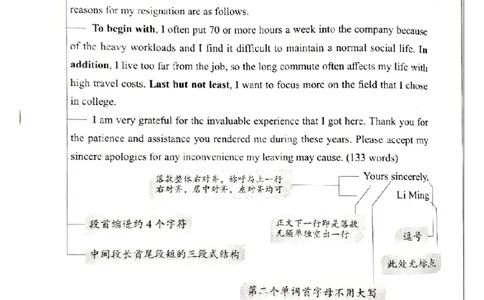 reasons for my resignation are as follows.
To begin with, I often put 70 or more hours a week into the company because
of the heavy workloads and I find it difficult to maintain a normal social life. In
addition, I live too far from the job, so the long commute often affects my life with
high travel costs. Last but not least, I want to focus more on the field that I chose
in college.
I am very grateful for the invaluable experience that I got here. Thank you for
the patience and assistance you rendered me during these years. Please accept my
sincere apologies for any inconvenience my leaving may cause. (133 words)
落款整体右对齐，称呼与上一行
右对齐，居中对齐，左对齐均可
Yours sincerely,
Li Ming
段首缩进约 4 个字符
正文下一行即是落款
无须单独空出一行
逗号
中间段长首尾段短的三段式结构
此处无标点
第二个单词首字母不用大写